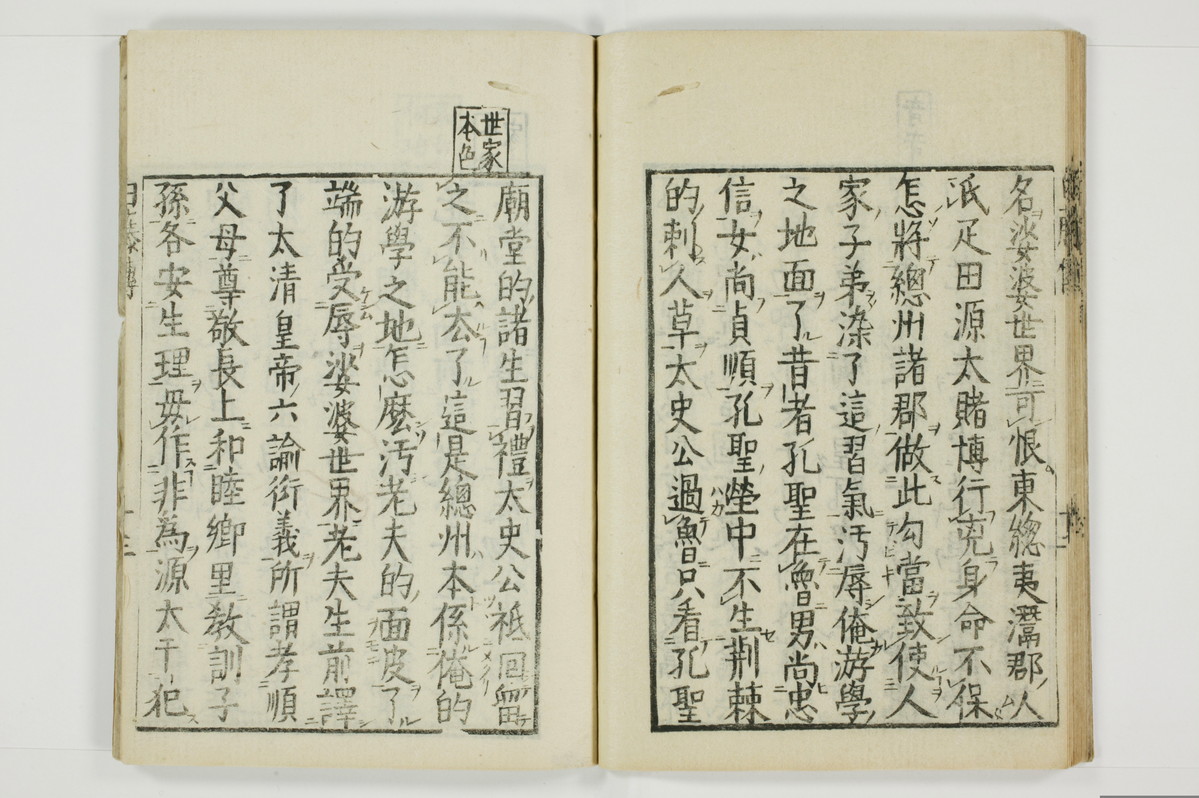 名婆婆世界可恨東總夷灊郡人
派疋田源太賭博行兇身命不保
怎將總州諸郡做此勾當致使人
家子弟染了這習氣汚辱俺游學
之地面了昔者孔聖在魯男尚忠
信女尚貞順孔聖塋中不生荊棘
的刺人草太史公過魯只看孔聖
世家
本色
廟堂的諸生習禮太史公祗回畱
之不能去了這是總州本係俺的
游學之地怎麽汚老夫的面皮了
端的受辱婆婆世界老夫生前譯
了太清皇帝六諭衍義所謂孝順
父母尊敬長上和睦鄉里教訓子
孫各安生理毋作非為源太干犯